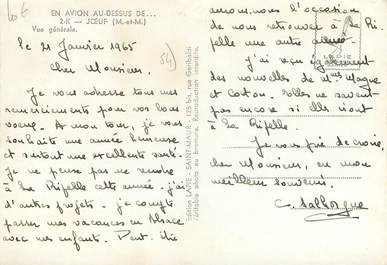 EN AVION AU-DESSUS DE...
2-K - JŒUF (M.-et-M.)
Vue générale.
54
le 21 Janvier 1965
Cher Monsieur,
Je vous adresse tous mes
remerciements pour vos bons
voeux. A mon tour, je vous
souhaite une année heureuse
et surtout une excellente santé.
Je ne pense pas me rendre
à La Rifelle cette année. j'ai
d'autres projets. je compte
passer mes vacances en Alsace
avec mes enfants. Peut-être
Edition LAPIE - SAINT-MAUR - 125 bis, rue Garibaldi
Véritable photo au Bromure. Reproduction interdite.
aurons-nous l'occasion
de nous retrouver à La Ri-
felle une autre année
j'ai reçu également
des nouvelles de Mmes
et Cotton. Elles ne savent
pas encore si elles iront
à La Rifelle.
Je vous prie de croire,
cher Monsieur, en mon
meilleur souvenir.